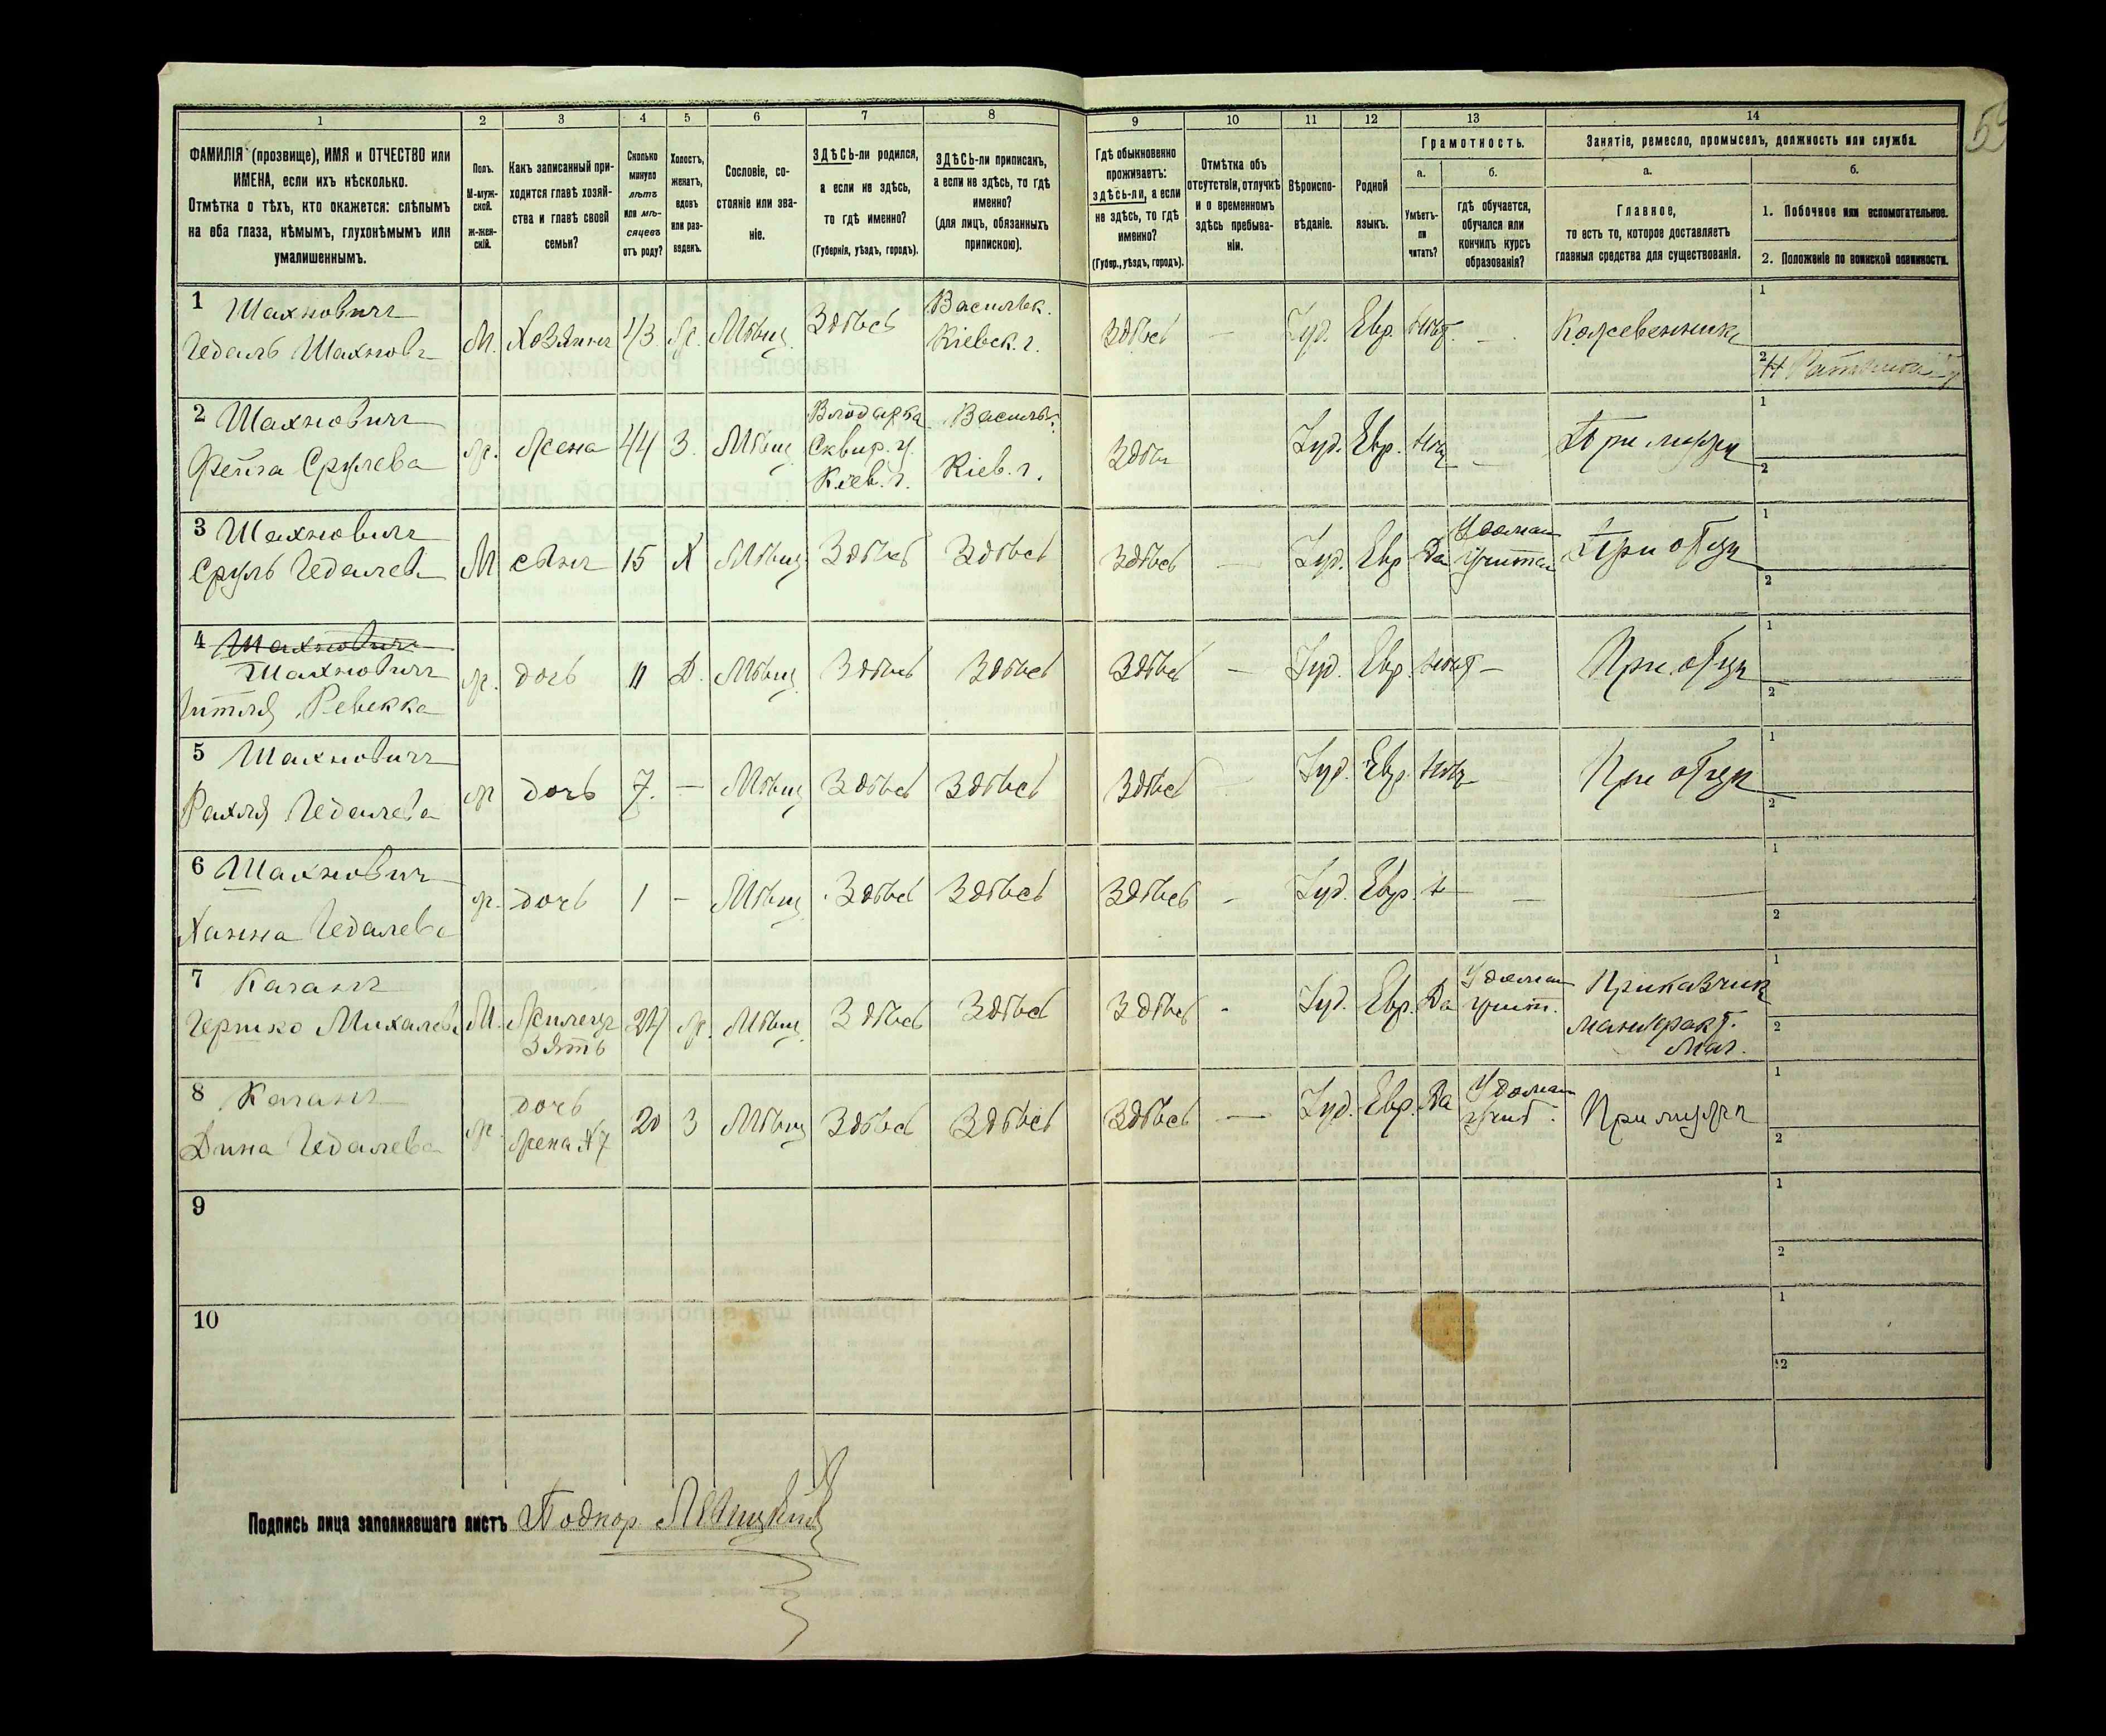 1 2 3 4 5 6 7 8 9 10 11 12 13 14
ФАМИЛІЯ (прозвище), ИМЯ и ОТЧЕСТВО или
ИМЕНА, если ихъ нѣсколько.
Отмѣтка о тѣхъ, кто окажется: слѣпымъ
на оба глаза, нѣмымъ, глухонѣмымъ или
умалишеннымъ.
Полъ.
М-муж-
ской.
ж-жен-
скій.
Какъ записанный при-
ходится главѣ хозяй-
ства и главѣ своей
семьи?
Сколько
минуло
лѣтъ
или мѣ-
сяцевъ
отъ роду?
Холостъ,
женатъ,
вдовъ
или раз-
веденъ.
Сословіе, со-
стояніе или зва-
ніе.
ЗДѢСЬ-ли родился,
а если не здѣсь,
то гдѣ именно?
(Губернія, уѣздъ, городъ).
ЗДѢСЬ-ли приписанъ,
а если не здѣсь, то гдѣ
именно?
(для лицъ, обязанныхъ
припискою).
Гдѣ обыкновенно
проживаетъ:
здѣсь-ли, а если
не здѣсь, то гдѣ
именно?
(Губер., уѣздъ, городъ).
Отмѣтка объ
отсутствіи, отлучкѣ
и о временномъ
здѣсь пребыва-
ніи.
Вѣроиспо-
вѣданіе.
Родной
языкъ.
Грамотность.
а.
Умѣетъ-
ли
читать?
б.
гдѣ обучается,
обучался или
кончилъ курсъ
образованія?
Занятіе, ремесло, промыселъ, должность или служба.
а.
Главное,
то есть то, которое доставляетъ
главныя средства для существованія.
б.
1. Побочное или вспомогательное.
2. Положеніе по воинской повинности.
1 Шахновичъ
Гедаль Шахновъ
М. Хозяинъ 43 Ж. Мѣщ. Здѣсь
Васильк.
Кіевск. г.
Здѣсь — Іуд. Евр. Нѣт. — Кожевенникъ
1
2
2 Шахновичъ
Фейга Срулева
Ж. Жена 44 З. Мѣщ.
Володарка
Сквир. у.
Кіев. г.
Васильк.
Кіев. г.
Здѣсь Іуд. Евр. Нѣт — При мужѣ
1
2
3 Шахновичъ
Сруль Гедалев
М сынъ 15 Х Мѣщ. Здѣсь Здѣсь
Здѣсь — Іуд. Евр Да
У домаш
учител
При отцѣ
1
2
4 Шахновичъ
Шахновичъ
Ревекка
ж. дочь 11 Д. Мѣщ. Здѣсь Здѣсь
Здѣсь — Іуд. Евр. Нѣт — При отцѣ
1
2
5 Шахновичъ
Рахля Гедалева
ж дочь 7. — Мѣщ Здѣсь Здѣсь
Здѣсь Іуд. Евр. Нѣт — При отцѣ
1
2
6 Шахновичъ
Ханна Гедалева
ж. дочь 1 — Мѣщ. Здѣсь Здѣсь
Здѣсь — Іуд. Евр. Н — —
1
2
7 Каганъ
Гершко Михалев
М. Жилецъ
зять
24 Ж. Мѣщ. Здѣсь Здѣсь
Здѣсь - Іуд. Евр. Да
У домаш
учит.
Приказчикъ
мануфакт.
маг.
1
2
8 Каганъ
Дина Гедалева
ж.
дочь
жена №7
20 З Мѣщ Здѣсь Здѣсь
Здѣсь — Іуд. Евр. Да
У домаш
учит.
При мужѣ
1
2
9
1
2
10
1
2
Подпись лица заполнявшаго листъ Подпор.